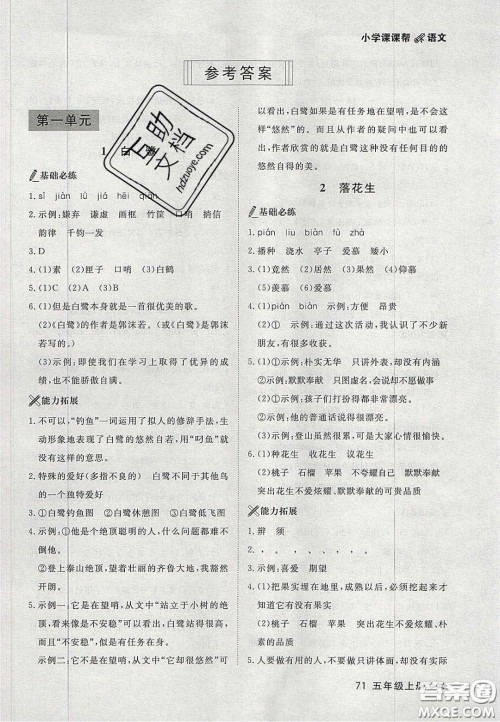 小学课课帮 语文
参考答案
第一单元
1 白鹭
基础必练
1. sǐ jiàn lǜ jǐ qiàn
2. 示例:嫌弃 谦虚 画框 竹筐 口哨 捎信
韵律 千钧一发
3. D
4. (1)素 (2)匣子 口哨 (3)白鹤
6. (1)但是白鹭本身就是一首很优美的歌。
(2)《白鹭》的作者是郭沫若。(《白鹭》是郭沫
若写的。)
(3)示例:即使我们在学习上取得了优异的成
绩,也不能骄傲自满。
能力拓展
1. 不可以,“钓鱼”一词运用了拟人的修辞手法,生
动形象地表现了白鹭的悠然自若,用“叼鱼”就
没有这样的意思。
2. 特殊的爱好(多指不良的) 白鹭不同于其他鸟
的一个独特爱好
3. ①白鹭钓鱼图 ②白鹭休憩图 ③白鹭低飞图
4. 示例:①他是个绝顶聪明的人,什么问题都难不
倒他。
②登上泰山绝顶,了望着壮丽的齐鲁大地,我感
到无比自豪。
5. 示例一:它是在望哨,从文中“站立于小树的绝
顶,看来像是不安稳”可以看出它是在望哨,所
以看来像是“不安稳”。
示例二:它不是在望哨,从文中“它却很悠然”可
以看出,白鹭如果是有任务地在望哨,是不会这
样“悠然”的。而且从作者的疑问中也可以看
出,作者欣赏的就是白鹭这种没有任何目的的
悠然自得的美。
2 落花生
基础必练
1. pián liu bìng zhū fù
2. 播种 浇水 亭子 爱慕 矮小
3. (1)竟然 (2)居然 (3)果然 (4)仰慕
4. (1)pián biàn 示例:方便 昂贵
(2)① 示例:通过这次活动,我们大开眼界。
② 示例:自从他取得了成功,就开始看不起老
朋友。
5. (1)①示例:朴实无华 只讲外表,却不能干实事
②示例:默默奉献 只图虚名,会说却不愿做事
(2)①示例:孩子们打扮得都很漂亮。
②示例:他的普通话说得很漂亮。
(3)示例:登山虽然很累,可是我真开心
6. (1)种花生 收花生 议花生
(2)桃子 石榴 苹果 不夸耀自己 默默奉献
突出花生不爱炫耀、默默奉献的品质
能力拓展
1. 辨 须
2. 。 , 。 , , ,
3. (1)示例:可爱 炫耀
(2)桃子 石榴 苹果 突出花生不爱炫耀
4. (1)把果实埋在地里,成熟以后,必须挖起来才
知道它有没有果实
(2)作用:突出花生的果实不爱炫耀,默默、朴
素的品质。
5. 要做有用的人,不要做只讲体面,而对别人没有
71 五年级上册